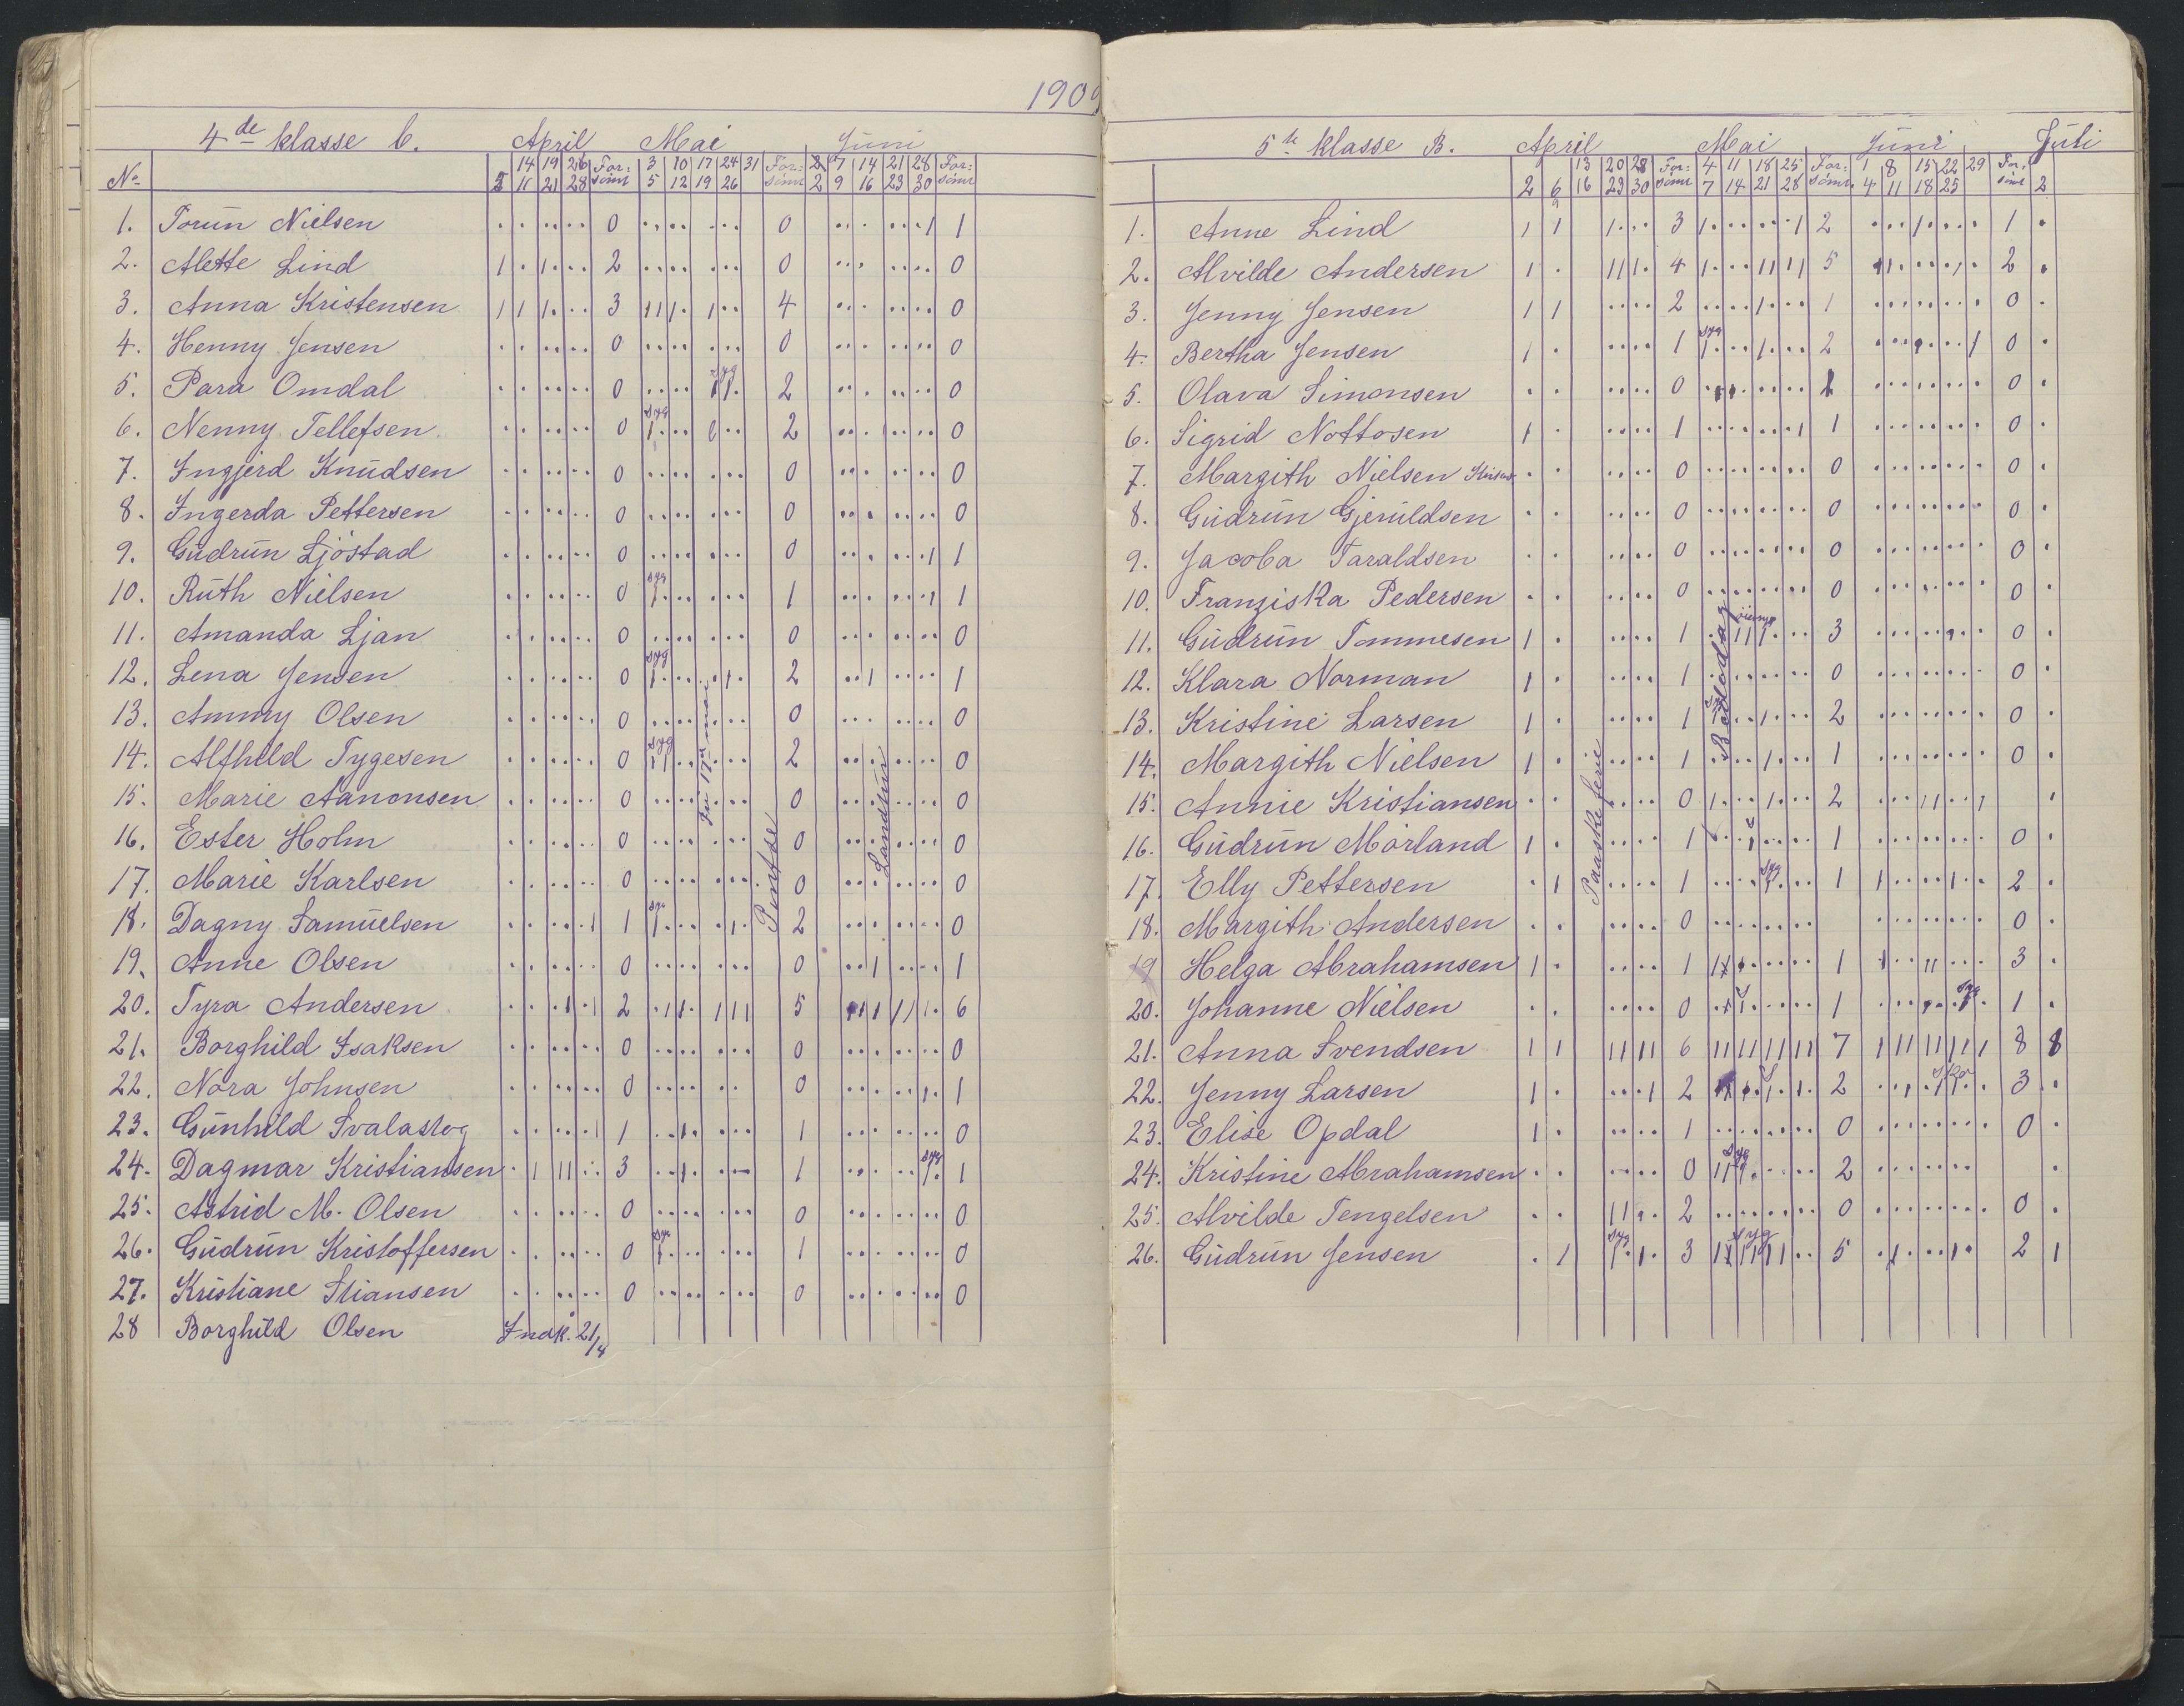 1909
4de klasse C. April Mai Juni
No 14 19 26 For: 3 10 17 24 31 For: 7 14 21 28 For:
2 11 21 28 sömt 5 12 19 26 sömt 2 9 16 23 30 sömt
1. Torun Nielsen 0 0 1 1
2. Alette Lind 1 1 2 0 0
3. Anna Kristensen 1 1 1 3 1 1 1 1 4 0
4. Henny Jensen 0 0 0
5. Para Omdal 0 syg 1 1 2 0
6. Nenny Tellefsen 0 syg 1 2 0
7. Ingjerd Knudsen 0 0 0
8. Ingerda Pettersen 0 0 0
9. Gudrun Ljöstad 0 0 1 1
10. Ruth Nielsen 0 syg 1 1 1 1
11. Amanda Ljan 0 0 0
12. Lena Jensen 0 syg 1 1 2 1 1
13. Ammy Olsen 0 0 0
14. Alfhild Tygesen 0 syg 1 1 2 0
15. Marie Aanonsen 0 0 0
16. Ester Holm 0 0 0
17. Marie Karlsen 0 0 0
18. Dagny Samuelsen 1 1 syg 1 1 2 0
19. Anne Olsen 0 0 1 1
20. Tyra Andersen 1 1 2 1 1 1 1 1 5 1 1 1 1 1 6
21. Borghild Isaksen 0 0 0
22. Nora Johnsen 0 0 1 1
23. Gunhild Svalastog 1 1 1 1 0
24. Dagmar Kristiansen 1 1 1 3 1 1 syg 1 1
25. Astrid M. Olsen 0 0 0
26. Gudrun Kristoffersen 0 syg 1 1 0
27. Kristiane Stiansen 0 0 0
28 Borghild Olsen Indk. 21/4
17de mai
Pintse
Landtur
5te klasse B. April Mai Juni Juli
13 20 28 For: 4 11 18 25 For: 1 8 15 22 29 For:
2 6 16 23 30 sömt 7 14 21 28 sömt 4 11 18 25 sömt 2
1. Anne Lind 1 1 1 3 1 1 2 1 1
2. Alvilde Andersen 1 1 1 1 4 1 1 1 1 1 5 1 1 2
3. Jenny Jensen 1 1 2 1 1 0
4. Bertha Jensen 1 1 syg 1 1 2 1 0
5. Olava Simonsen 0 0
6. Sigrid Nottosen 1 1 1 1 0
7. Margith Nielsen 0 0 0
8. Gudrun Gjeruldsen 0 0 0
9. Jacoba Taraldsen 0 0 0
10. Franziska Pedersen 0 0 0
11. Gudrun Tommesen 1 1 1 1 1 3 0
12. Klara Norman 1 1 0 0
13. Kristine Larsen 1 1 1 2 0
14. Margith Nielsen 1 1 1 1 0
15. Annie Kristiansen 0 1 1 2 1 1 1
16. Gudrun Mörland 1 1 1 1 0
17. Elly Pettersen 1 1 syg 1 1 1 1 2
18. Margith Andersen 0 0
19 Helga Abrahamsen 1 1 1 1 1 1 1 3
20. Johanne Nielsen 0 1 1 syg 1 1
21. Anna Svendsen 1 1 1 1 1 1 6 1 1 1 1 1 1 1 1 7 1 1 1 1 1 1 1 1 8 8
22. Jenny Larsen 1 1 2 1 1 2 1 1 1 3
23. Elise Opdal 1 1 0 0
24. Kristine Abrahamsen 0 1 1 syg 2
25. Alvilde Tengelsen 1 1 2 0 0
26. Gudrun Jensen 1 syg 1 1 3 1 syg 1 1 1 1 5 1 1 2 1
Paaskeferie
Bededag